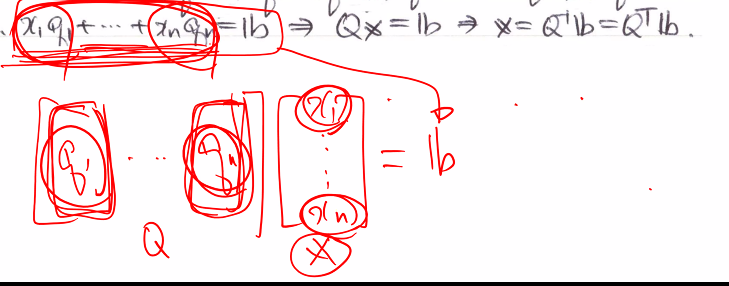 x₁q₁ + ⋯ + xₙqₙ = 𝕓 ⇒ Q𝕩 = 𝕓 ⇒ 𝕩 = Q⁻¹𝕓 = Qᵀ𝕓.
[q₁ ⋯ qₙ] [x₁ ⋮ xₙ] = 𝕓
Q 𝕩